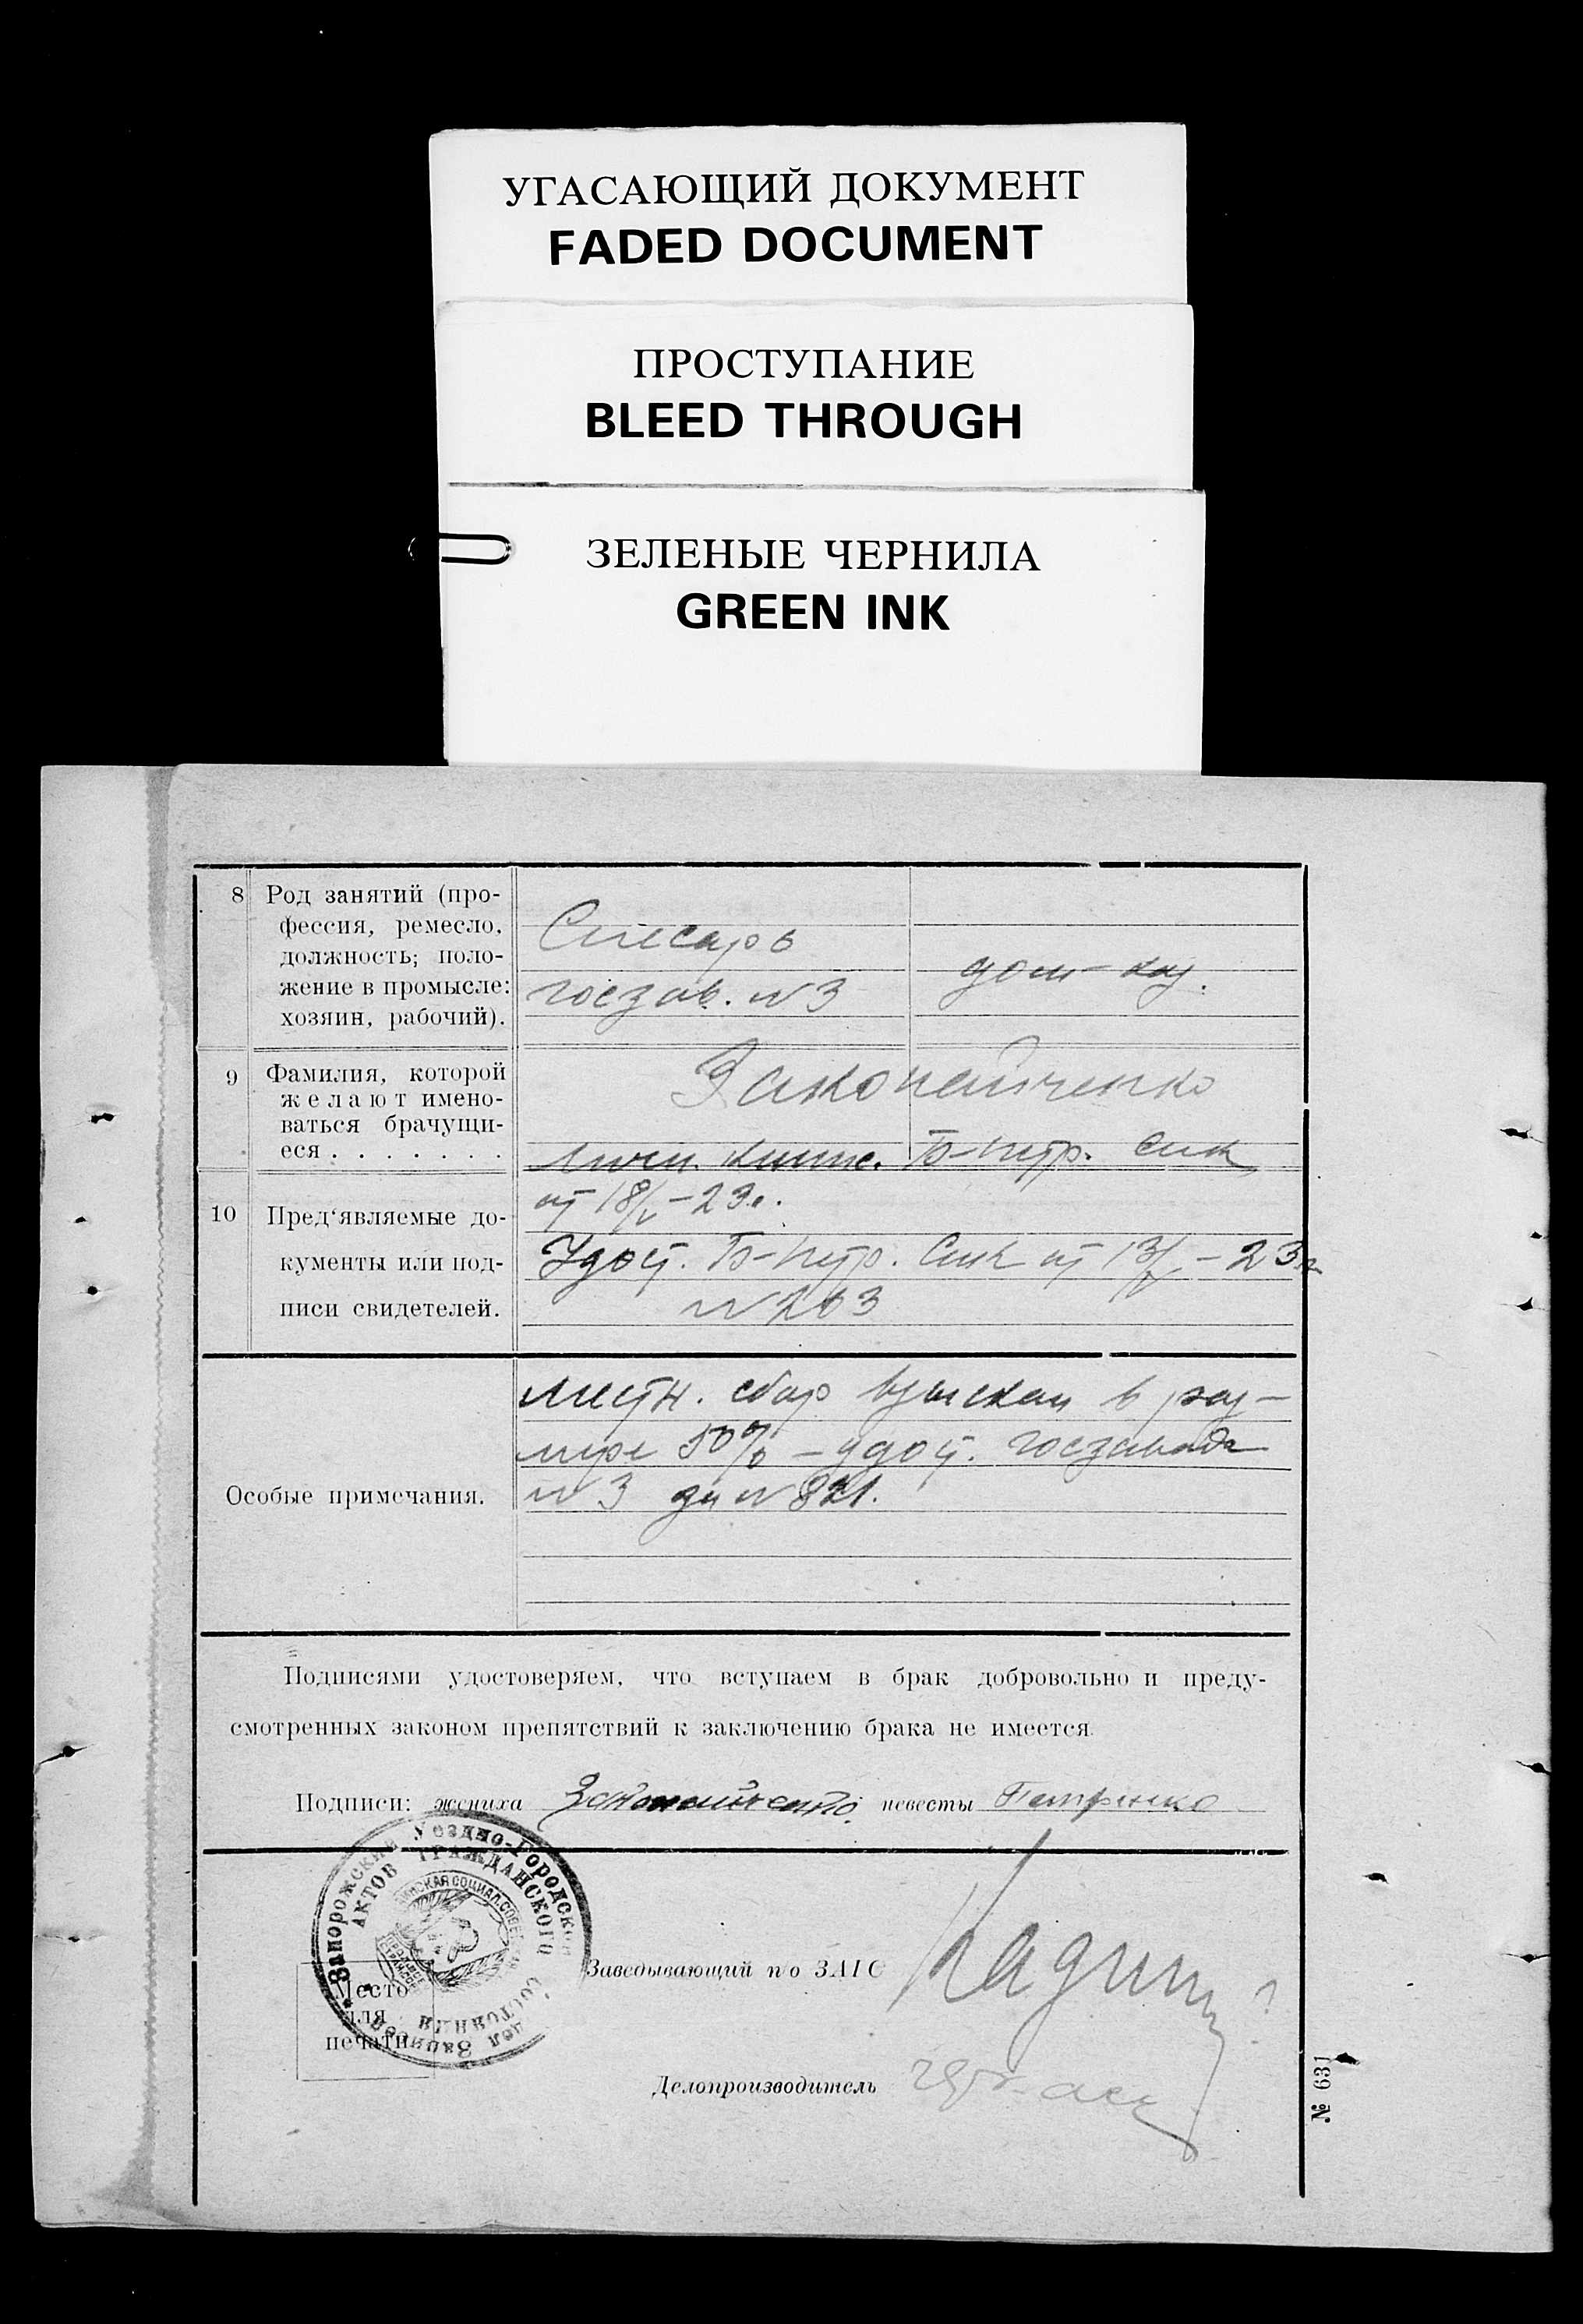 УГАСАЮЩИЙ ДОКУМЕНТ
FADED DOCUMENT
ПРОСТУПАНИЕ
BLEED THROUGH
ЗЕЛЕНЫЕ ЧЕРНИЛА
GREEN INK
8 Род занятий (про-
фессия, ремесло,
должность; поло-
жение в промысле:
хозяин, рабочий).
Слесарь
госзав. №3
дом-хоз.
9 Фамилия, которой
желают имено-
ваться брачущи-
еся . . . . . . .
Законайченко
10 Пред'являемые до-
кументы или под-
писи свидетелей.
личн. книж. Б-
от 18/V-23г.
Удост. Б- от 13/ - 23г
№ 263
Особые примечания.
местн. сбор взыскан в раз-
мере 50% - удост. госзавода
№ 3 за № 821.
Подписями удостоверяем, что вступаем в брак добровольно и преду-
смотренных законом препятствий к заключению брака не имеется.
Подписи: жениха невесты Петренко
Запорожский Уездно-Городской
АКТОВ ГРАЖДАНСКОГО
Состояния
Место
для
печати
Заведывающий по ЗАГС
Делопроизводитель
№ 631